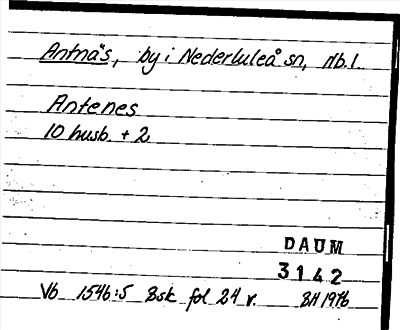 Antnäs, by i Nederluleå sn, Nb.l.
Antenes
10 husb. + 2
DAUM
3142
Vb 1546:5 Bsk fol 24 v. BH 1976